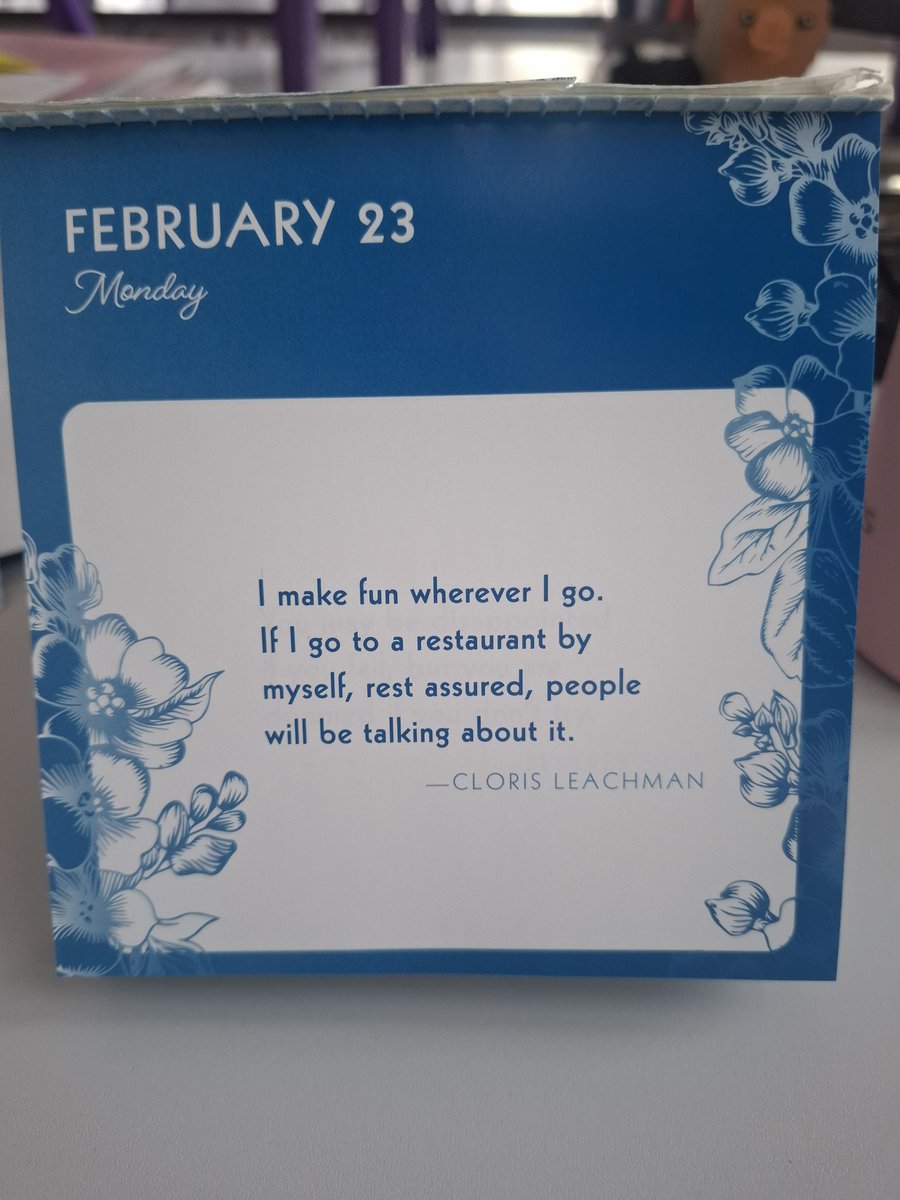 FEBRUARY 23
Monday
I make fun wherever I go.
If I go to a restaurant by
myself, rest assured, people
will be talking about it.
—CLORIS LEACHMAN